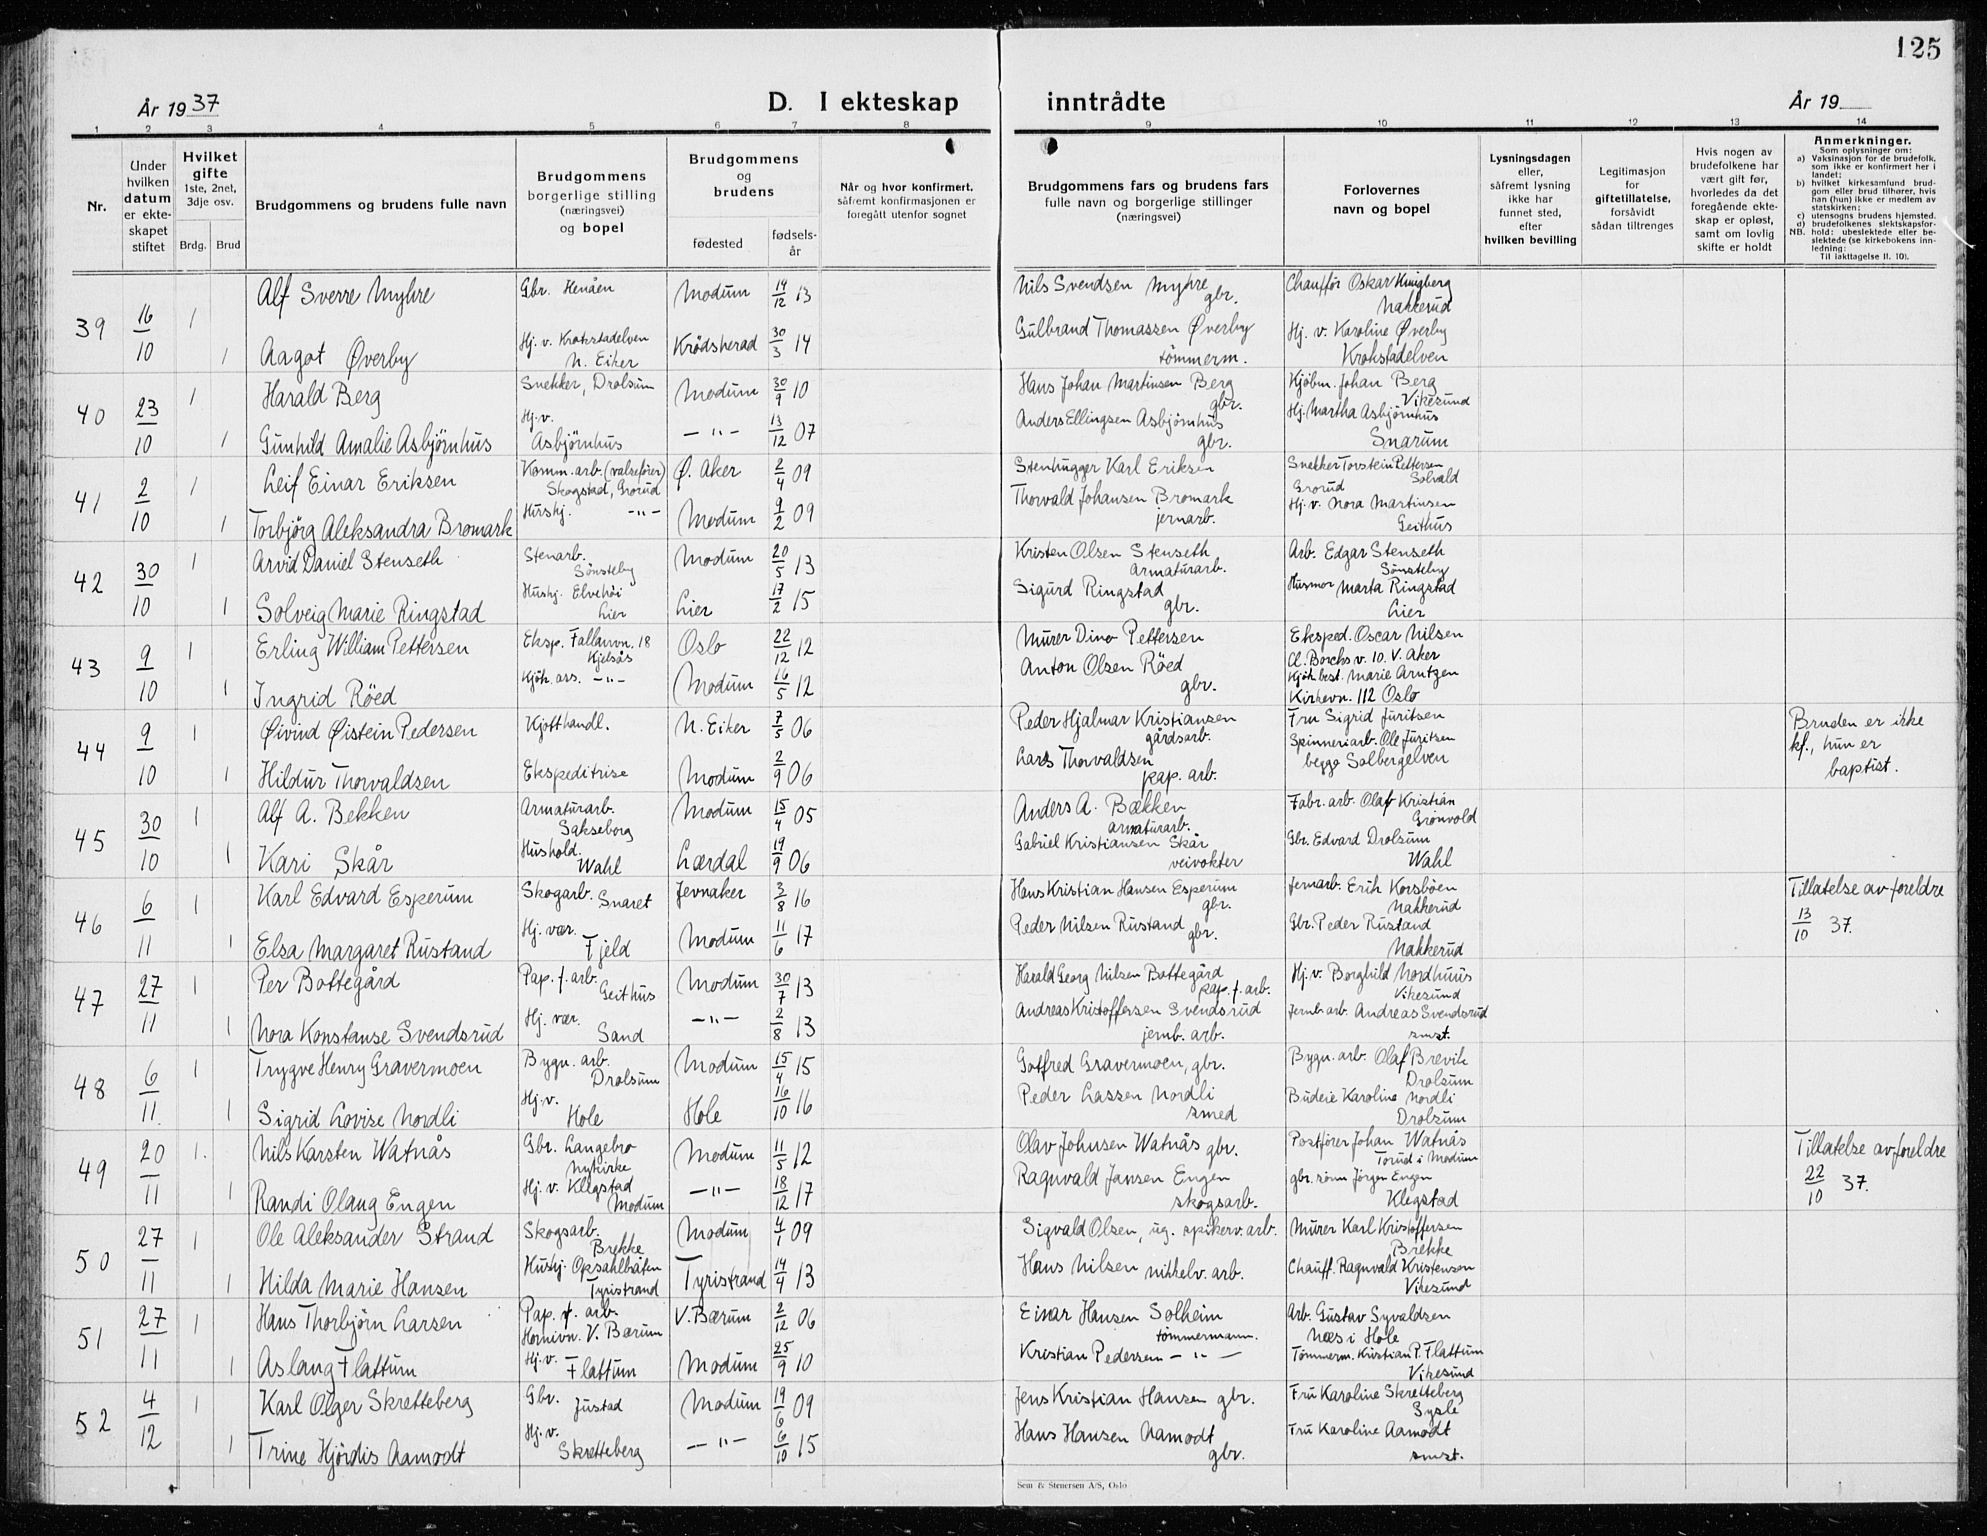 125
År 1937
D. I ekteskap inntrådte
År 19
1 2 3 4 5 6 7 8 9 10 11 12 13 14
Nr.
Under hvilken datum er ekteskapet stiftet
Hvilket gifte 1ste, 2net, 3dje osv.
Brdg. Brud
Brudgommens og brudens fulle navn
Brudgommens borgerlige stilling (næringsvei) og bopel
Brudgommens og brudens
fødested
fødselsår
Når og hvor konfirmert, såfremt konfirmasjonen er foregått utenfor sognet
Brudgommens fars og brudens fars fulle navn og borgerlige stillinger (næringsvei)
Forlovernes navn og bopel
Lysningsdagen eller, såfremt lysning ikke har funnet sted, efter hvilken bevilling
Legitimasjon for giftetillatelse, forsåvidt sådan tiltrenges
Hvis nogen av brudefolkene har vært gift før, hvorledes da det foregående ekteskap er opløst, samt om lovlig skifte er holdt
Anmerkninger.
Som oplysninger om:
a) Vaksinasjon for de brudefolk, som ikke er konfirmert her i landet;
b) hvilket kirkesamfund brudgom eller brud tilhører, hvis han (hun) ikke er medlem av statskirken;
c) utensogns brudens hjemsted.
d) brudefolkenes slektskapsforhold: ubeslektede eller beslektede (se kirkebokens innledning:
NB. Til iakttagelse II. 10).
39 16/10 1 Alf Sverre Myhre Gbr. Henåen Modum 14/12 13 Nils Svendsen Myhre gbr. Chauffør Oskar Nakkerud
1 Aagot Øverby Hj. v. Krokstadelven N. Eiker Krødsherad 30/3 14 Gulbrand Thomassen Øverby tømmerm. Hj. v. Karoline Øverby Krokstadelven
40 23/10 1 Harald Berg Snekker, Drolsum Modum 30/9 10 Hans Johan Martinsen Berg gbr. Kjøbm. Johan Berg Vikesund
1 Gunhild Amalie Asbjørnhus Hj. v. Asbjørnhus —"— 13/12 07 Anders Ellingsen Asbjørnhus gbr. Hj. Martha Asbjørnhus Snarum
41 2/10 1 Leif Einar Eriksen Komm. arb. (valsefører) Skogstad, Grorud Ø. Aker 2/4 09 Stenhugger Karl Eriksen Snekker Torstein Pettersen Solvald Grorud
1 Torbjørg Aleksandra Bromark Hushj. —"— Modum 9/2 09 Thorvald Johansen Bromark jernarb. Hj. v. Nora Martinsen Geithus
42 30/10 1 Arvid Daniel Stenseth Stenarb. Sønsteby Modum 20/5 13 Kristen Olsen Stenseth armaturarb. Arb. Edgar Stenseth Sønsteby
1 Solveig Marie Ringstad Hushj. Elvehøi Lier Lier 17/2 15 Sigurd Ringstad gbr. Husmor Marta Ringstad Lier
43 9/10 1 Erling William Pettersen Eksp. Fallanvn. 18 Kjelsås Oslo 22/12 12 Murer Dino Pettersen Eksped. Oscar Nilsen Cl. Borchs v. 10. V. Aker
1 Ingrid Röed Kjøk. ass. —"— Modum 16/5 12 Anton Olsen Röed gbr. Kjøk. best. Marie Arntzen Kirkevn. 112 Oslo
44 9/10 1 Øivind Øistein Pedersen Kjøtthandl. N. Eiker 7/5 06 Peder Hjalmar Kristiansen gårdsarb. Fru Sigrid Juritsen Bruden er ikke kf., hun er baptist.
1 Hildur Thorvaldsen Ekspeditrise Modum 2/9 06 Lars Thorvaldsen pap. arb. Spinneriarb. Ole Juritsen begge Solbergelven
45 30/10 1 Alf A. Bekken Armaturarb. Sakseborg Modum 15/4 05 Anders A. Bækken armaturarb. Fabr. arb. Olaf Kristian Grønvold
1 Kari Skår Hushold. Wahl Lærdal 19/9 06 Gabriel Kristiansen Skår veivokter Gbr. Edvard Drolsum Wahl
46 6/11 1 Karl Edvard Esperum Skogarb. Snaret Jevnaker 3/8 16 Hans Kristian Hansen Esperum gbr. Jernarb. Erik Korsbøen Nakkerud Tillatelse av foreldre 13/10 37.
1 Elsa Margaret Rustand Hj. vær. Fjeld Modum 11/6 17 Peder Nilsen Rustand gbr. Gbr. Peder Rustand Nakkerud
47 27/11 1 Per Bottegård Pap. f. arb. Geithus Modum 30/7 13 Harald Georg Nilsen Bottegård pap. f. arb. Hj. v. Borghild Nordhuus Vikesund
1 Nora Konstanse Svendsrud Hj. vær. Sand —"— 2/8 13 Andreas Kristoffersen Svendsrud jernb. arb. Jernb arb. Andreas Svendsrud smst.
48 6/11. 1 Trygve Henry Gravermoen Bygn. arb. Drolsum Modum 15/4 15 Gotfred Gravermoen, gbr. Bygn. arb. Olaf Brevik Drolsum
1 Sigrid Lovise Nordli Hj. v. Hole Hole 16/10 16 Peder Lassen Nordli smed Budeie Karoline Nordli Drolsum
49 20/11 1. Nils Karsten Watnås Gbr. Langebro Nykirke Modum 11/5 12 Olav Johnsen Watnås gbr. Postfører Johan Watnås Torud i Modum Tillatelse av foreldre 22/10 37.
1 Randi Olaug Engen Hj. v. Kligstad Modum —"— 18/12 17 Ragnvald Jansen Engen skogsarb. gbr. sønn Jørgen Engen Kligstad
50 27/11 1 Ole Aleksander Strand Skogsarb. Brekke Modum 4/1 09 Sigvald Olsen, ug. spikerv. arb. Murer Karl Kristoffersen Brekke
1 Hilda Marie Hansen Hushj. Opsahlhåten Tyristrand Tyristrand 14/4 13 Hans Nilsen nikkelv. arb. Chauff. Ragnvald Kristensen Vikesund
51 27/11 1 Hans Thorbjørn Larsen Pap. f. arb. Hornivn. V. Bærum V. Bærum 2/12 06 Einar Hansen Solheim tømmermann. Arb. Gustav Syvaldsen Næs i Hole
1 Aslaug Flattum Hj. v. Flattum Modum 25/9 10 Kristian Pedersen —"— Tømmerm. Kristian P. Flattum Vikesund
52 4/12 1 Karl Olger Skretteberg Gbr. Justad Modum 19/6 09 Jens Kristian Hansen gbr. Fru Karoline Skretteberg Sysle
1 Trine Hjördis Aamodt Hj. v. Skretteberg —"— 6/10 15 Hans Hansen Aamodt gbr. Fru Karoline Aamodt smst.
Sem & Stenersen A/S, Oslo